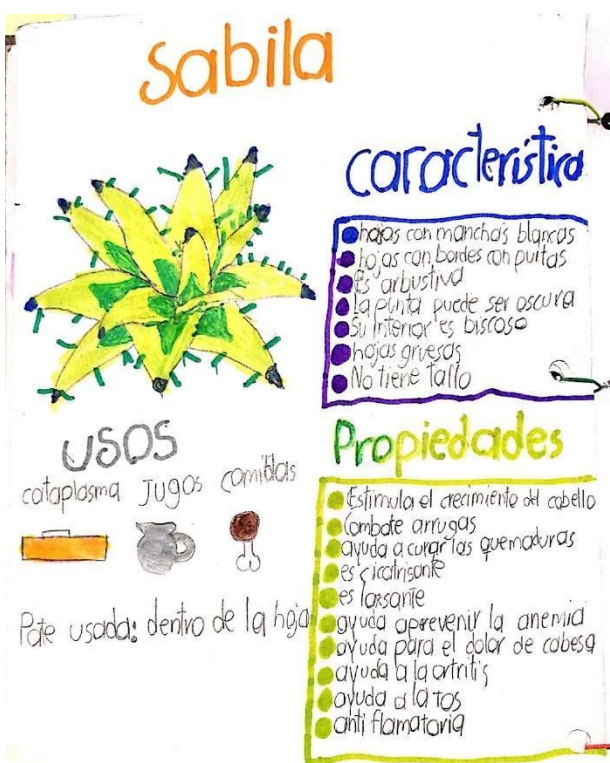 Sabila
Característica
hojas con manchas blancas
hojas con bordes con puitas
Es arbustiva
la punta puede ser oscura
Su interior es biscoso
hojas gruesas
No tiene tallo
USOS
cataplasma Jugos comidas
Pate usada: dentro de la hoja
Propiedades
Estimula el crecimiento del cabello
Combate arrugas
ayuda a curar las quemaduras
es cicatrisante
es larsante
ayuda aprevenir la anemia
ayuda para el dolor de cabesa
ayuda a la artritis
ayuda a la tos
anti flamatoria